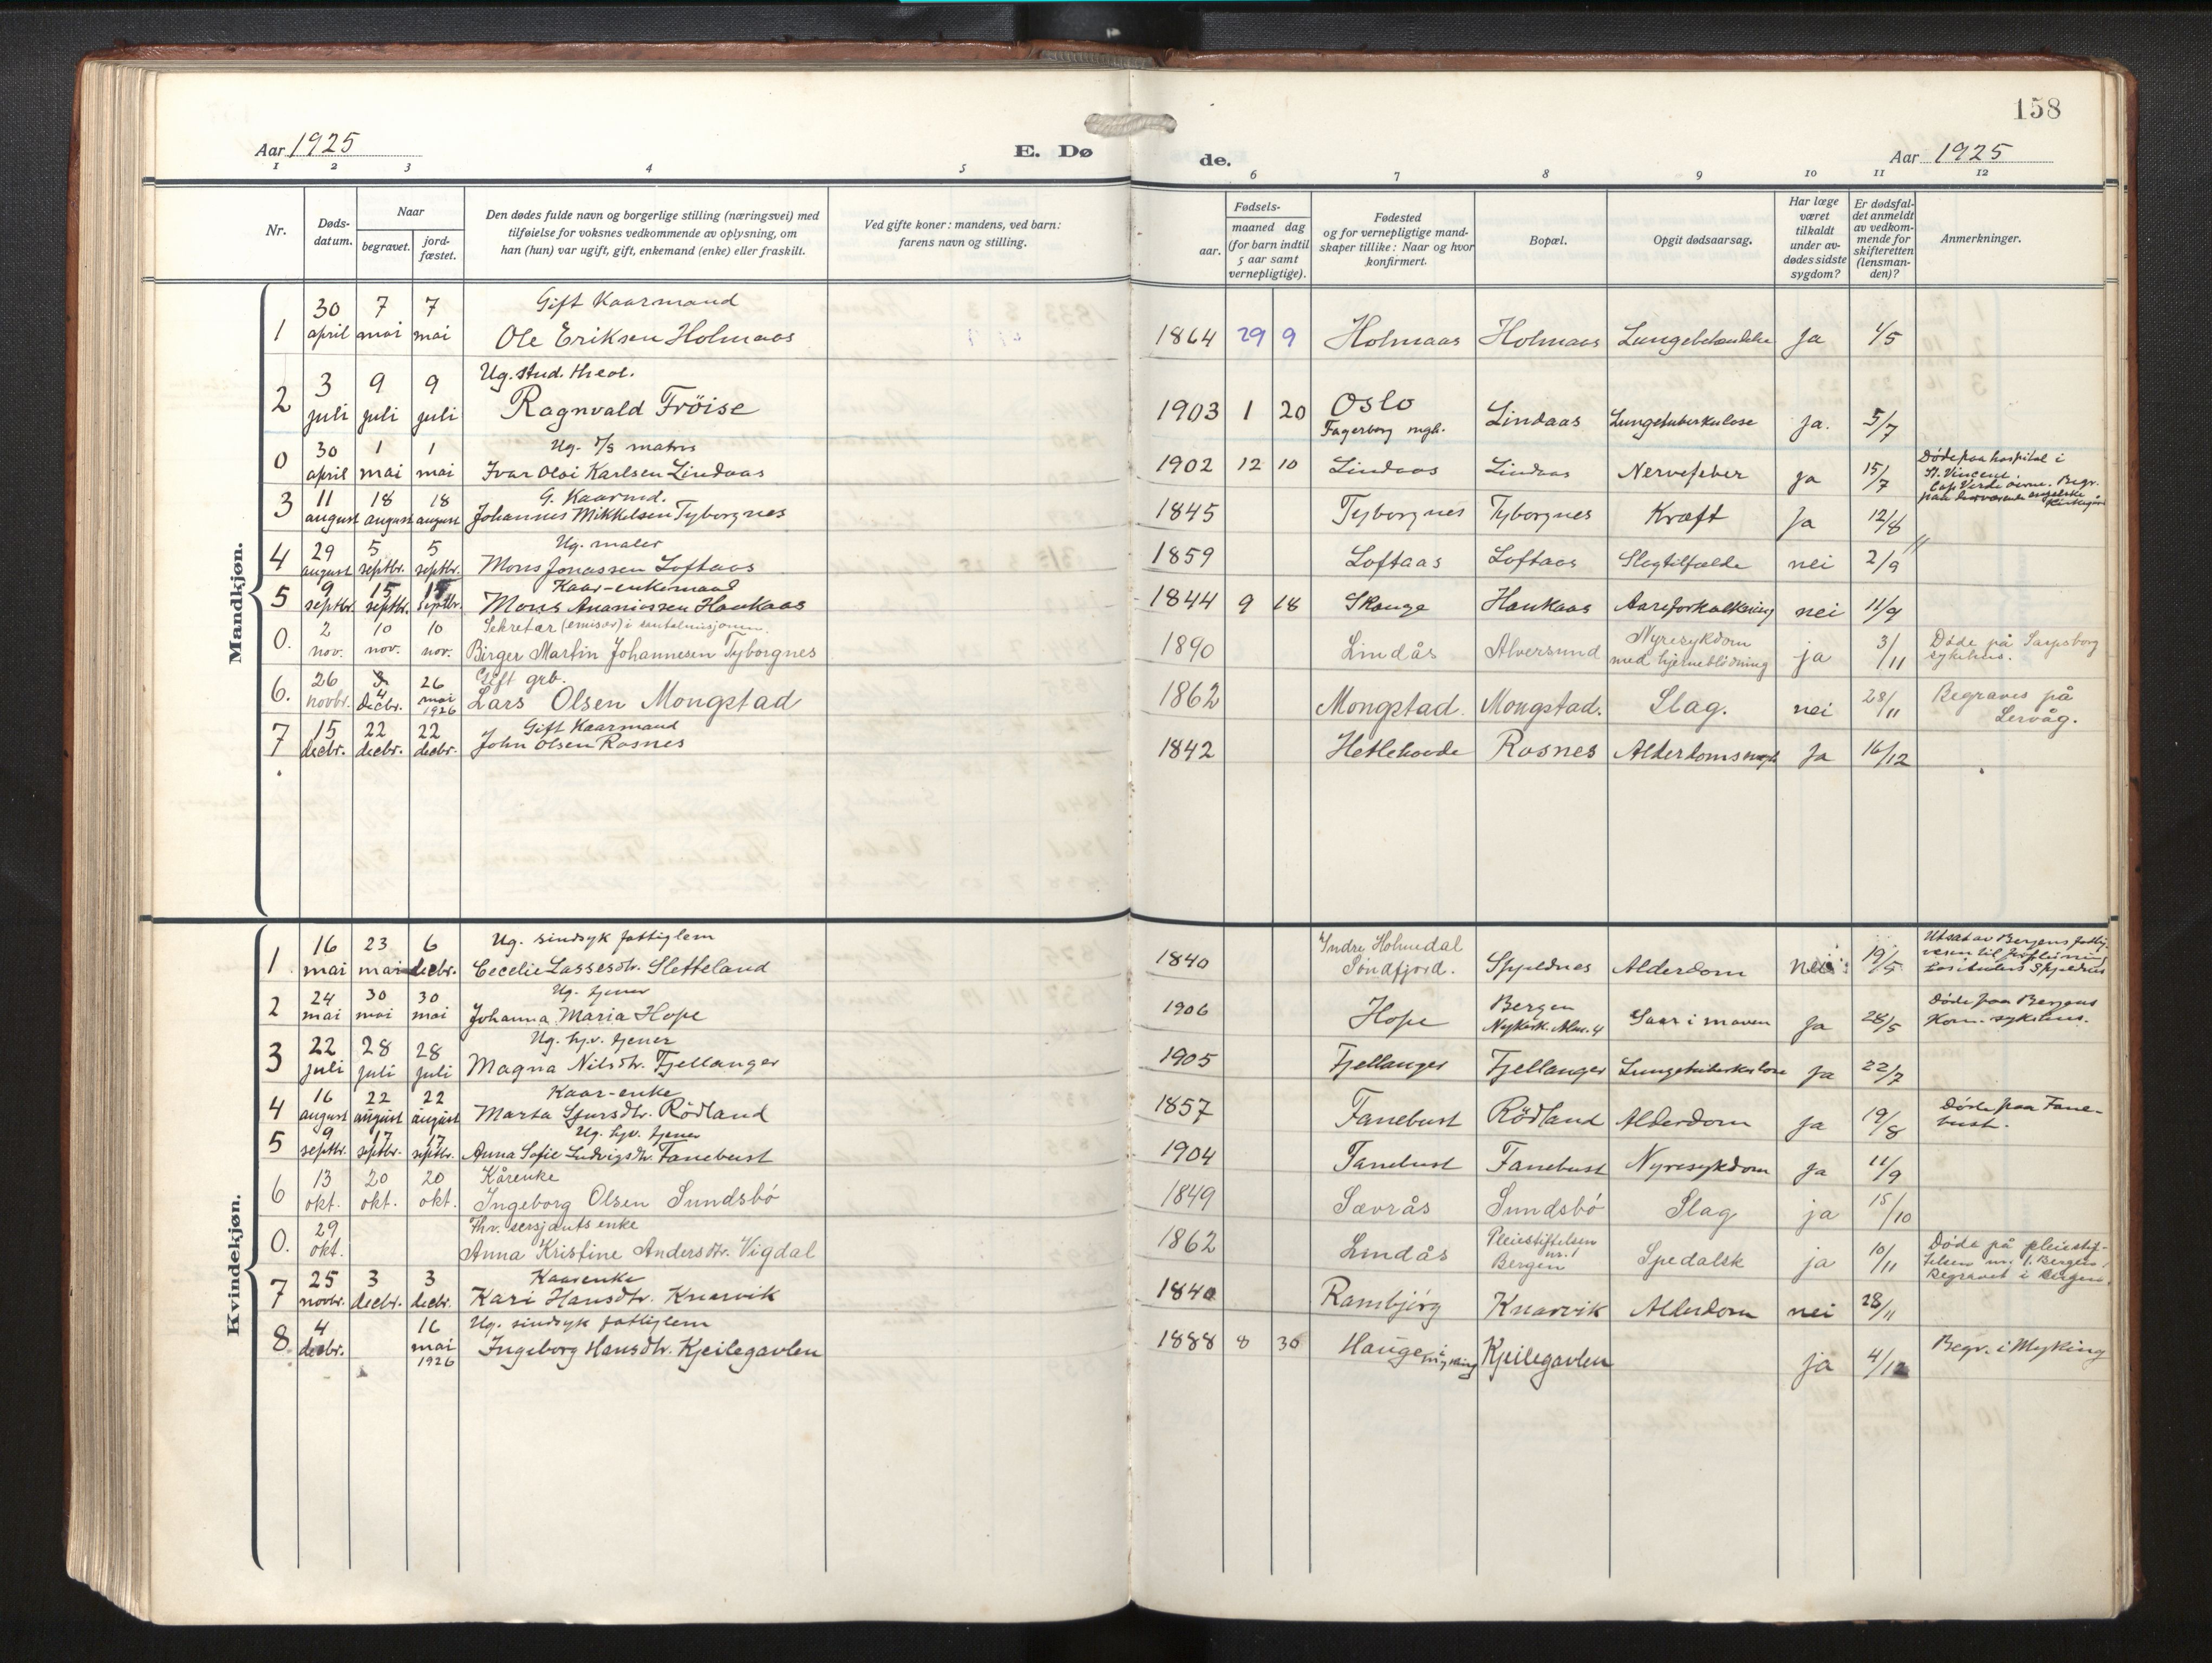 158
Aar 1925
E. Dø
de.
Aar 1925
1 2 3 4 5 6 7 8 9 10 11 12
Nr.
Døds-
datum.
Naar
begravet.
jord-
fæstet.
Den dødes fulde navn og borgerlige stilling (næringsvei) med
tilføielse for voksnes vedkommende av oplysning, om
han (hun) var ugift, gift, enkemand (enke) eller fraskilt.
Ved gifte koner: mandens, ved barn:
farens navn og stilling.
Fødsels-
aar.
maaned dag
(for barn indtil
5 aar samt
vernepligtige).
Fødested
og for vernepligtige mand-
skaper tillike: Naar og hvor
konfirmert.
Bopæl.
Opgit dødsaarsag.
Har læge
været
tilkaldt
under av-
dødes sidste
sygdom?
Er dødsfal-
det anmeldt
av vedkom-
mende for
skifteretten
(lensman-
den)?
Anmerkninger.
Mandkjøn.
30 7 7 Gift Kaarmand
1 april mai mai Ole Eriksen Holmaas 1864 29 9 Holmaas Holmaas Ja 1/5
3 9 9 Ug. stud. theol.
2 juli juli juli Ragnvald Fröise 1903 1 20 Oslo Lindaas Lungetuberkulose ja. 5/7
Fagerborg mgh.
30 1 1 Ug. matros
0 april mai mai Ivar Olai Karlsen Lindaas 1902 12 10 Lindaas Lindaas Nervefeber ja 15/7
Døde paa hospital i
St. Vincent,
Cap Verde øerne. Begr.
paa derværende engelske
11 18 18 G. Kaarmd.
3 august august august Johannes Mikkelsen Tyborgnes 1845 Tyborgnes Tyborgnes Kræft Ja 12/8
29 5 5 Ug. maler
4 august septbr. septbr. Mons Jonassen Loftaas 1859 Loftaas Loftaas Slagtilfælde nei 2/9
9 15 15 Kaar-enkemand
5 septbr. septbr. septbr. Mons Ananiassen Haukaas 1844 9 18 Skauge Haukaas Aareforkalkning nei 11/9
2 10 10 Sekretær (emisær) i santalmisjonen.
0. nov. nov. nov. Birger Martin Johannesen Tyborgnes 1890 Lindås Alversund Nyresykdom
med hjerneblödning ja 3/11 Døde på Sarpsborg
sykehus.
26 4 26 Gift grb.
6. novbr. decbr. mai
1926 Lars Olsen Mongstad 1862 Mongstad. Mongstad. Slag. nei 28/11 Begraves på
Lervåg.
15 22 22 Gift Kaarmand
7 decbr. decbr. decbr. John Olsen Rosnes 1842 Rosnes Ja 16/12
Kvindekjøn.
16 23 6 Ug. sindsyk fattiglem
1 mai mai decbr. Cecelie Lassesdtr. Sletteland 1840 Indre Holmedal
Söndfjord. Spjeldnes Alderdom nei 19/5
Utsat av Bergens fattig-
vesen til forpleining
24 30 30 Ug. tjener
2 mai mai mai Johanna Maria Hope 1906 Hope Bergen
Nykirk. Alm. 4 Saar i maven Ja 28/5 Døde paa Bergens
Kom. sykehus.
22 28 28 Ug. hjv. tjener
3 juli juli juli Magna Nilsdtr. Fjellanger 1905 Fjellanger Fjellanger Lungetuberkulose Ja 22/7
16 22 22 Kaar-enke
4 august august august Marta Sjursdtr. Rödland 1857 Fanebust Rödland Alderdom Ja 19/8 Døde paa Fane-
bust.
9 17 17 Ug. hjv. tjener
5 septbr. septbr. septbr. Anna Sofie Ludvigsdtr. Fanebust 1904 Fanebust Fanebust Nyresykdom Ja 11/9
13 20 20 Kårenke
6 okt. okt. okt. Ingeborg Olsen Sundsbö 1849 Sævrås Sundsbö Slag ja 15/10
29 Fhv. sersjants enke
0. okt. Anna Kristine Andersdtr. Vigdal 1862 Lindås Pleiestiftelsen
nr. 1
Bergen Spedalsk ja 10/11 Døde på pleiestif-
telsen nr. 1. Bergen,
Begravet i Bergen.
25 3 3 Kaarenke
7 novbr. decbr. decbr. Kari Hansdtr. Knarvik 1840 Ramsbjörg Knarvik Alderdom nei 28/11
4 16 Ug. sindsyk fattiglem
8 decbr. mai
1926 Ingeborg Hansdtr. Kjeilegavlen 1888 8 30 Hauge i
Myking Kjeilegavlen ja 4/12 Begr. i Myking